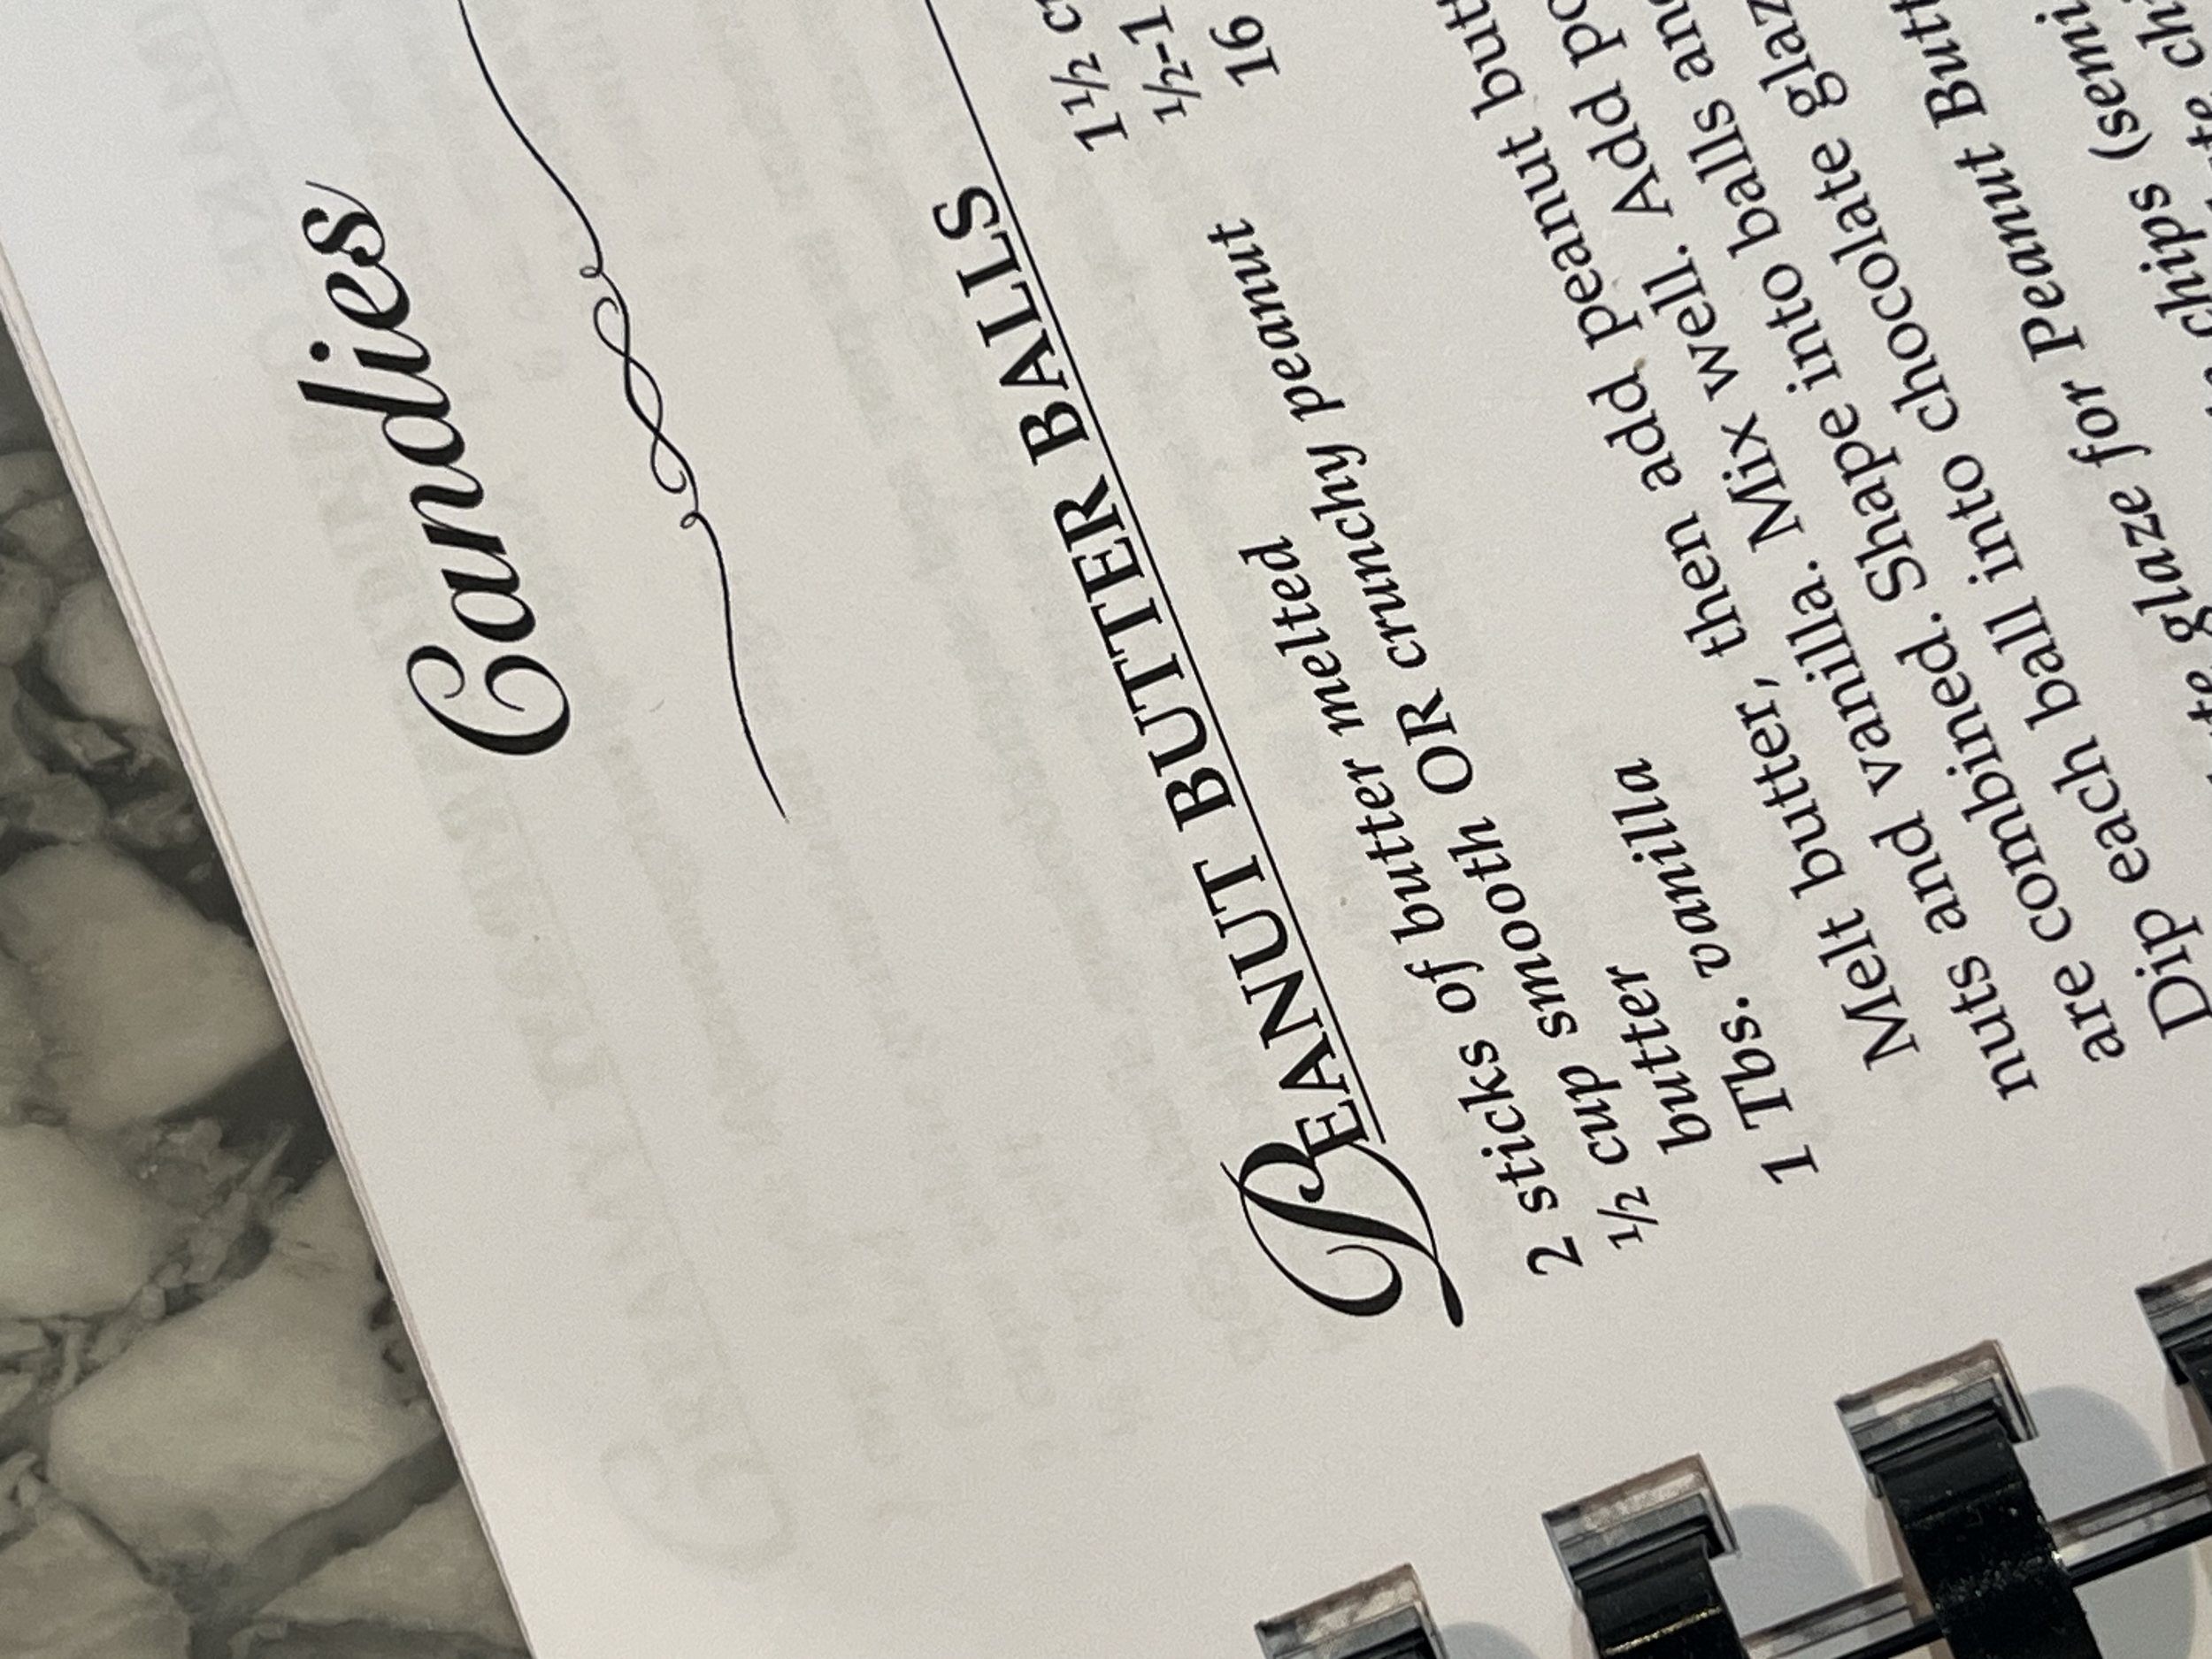 Candies
PEANUT BUTTER BALLS
2 sticks of butter melted
½ cup smooth OR crunchy peanut
butter
1 Tbs. vanilla
1½
½-1
16
Melt butter, then add peanut
nuts and vanilla. Mix well. Add
are combined. Shape into balls
Dip each ball into chocolate
glaze for Peanut
chips